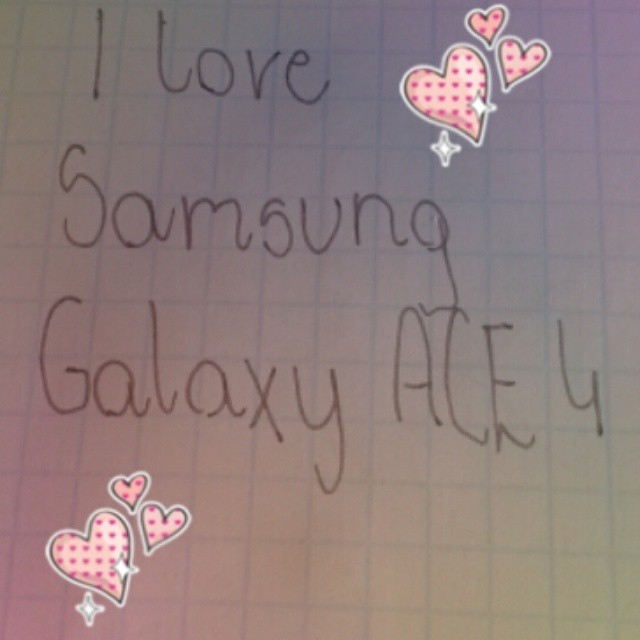 I love
Samsung
Galaxy ACE 4